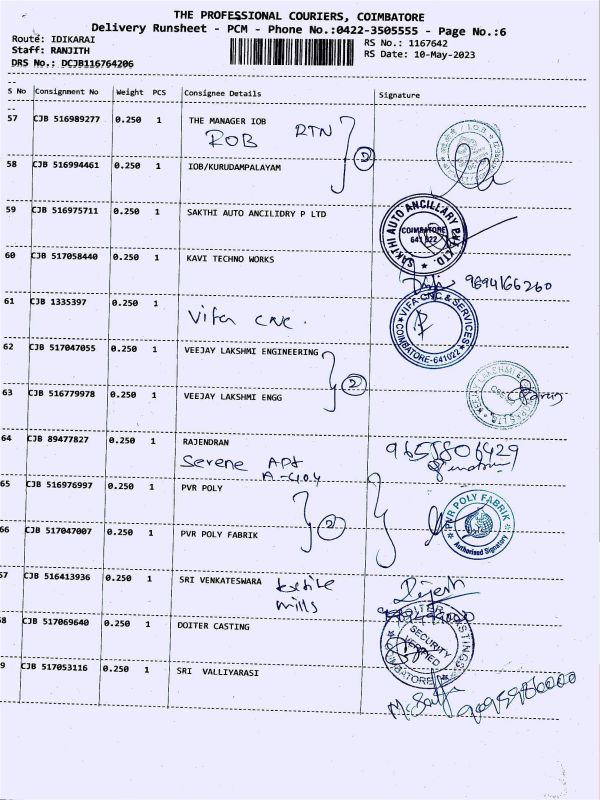 THE PROFESSIONAL COURIERS, COIMBATORE
Delivery Runsheet - PCM - Phone No.:0422-3505555 - Page No.:6
Route: IDIKARAI RS No.: 1167642
Staff: RANJITH RS Date: 10-May-2023
DRS No.: DCJB116764206
S No Consignment No Weight PCS Consignee Details Signature
57 CJB 516989277 0.250 1 THE MANAGER IOB
ROB RTN 2
58 CJB 516994461 0.250 1 IOB/KURUDAMPALAYAM
59 CJB 516975711 0.250 1 SAKTHI AUTO ANCILIDRY P LTD
SAKTHI AUTO ANCILLARY PVT. LTD.
COIMBATORE
641 022
60 CJB 517058440 0.250 1 KAVI TECHNO WORKS
9894166260
61 CJB 1335397 0.250 1
Vifa CNC.
VIFA-CNC & SERVICES
COIMBATORE-641022
62 CJB 517047055 0.250 1 VEEJAY LAKSHMI ENGINEERING
2
63 CJB 516779978 0.250 1 VEEJAY LAKSHMI ENGG
64 CJB 89477827 0.250 1 RAJENDRAN
Serene Apt 9655806429
65 CJB 516976997 0.250 1 PVR POLY
2
PVR POLY FABRIK
Authorised Signatory
66 CJB 517047007 0.250 1 PVR POLY FABRIK
67 CJB 516413936 0.250 1 SRI VENKATESWARA textile
mills
68 CJB 517069640 0.250 1 DOITER CASTING
SECURITY
VERIFIED
COIMBATORE
69 CJB 517053116 0.250 1 SRI VALLIYARASI